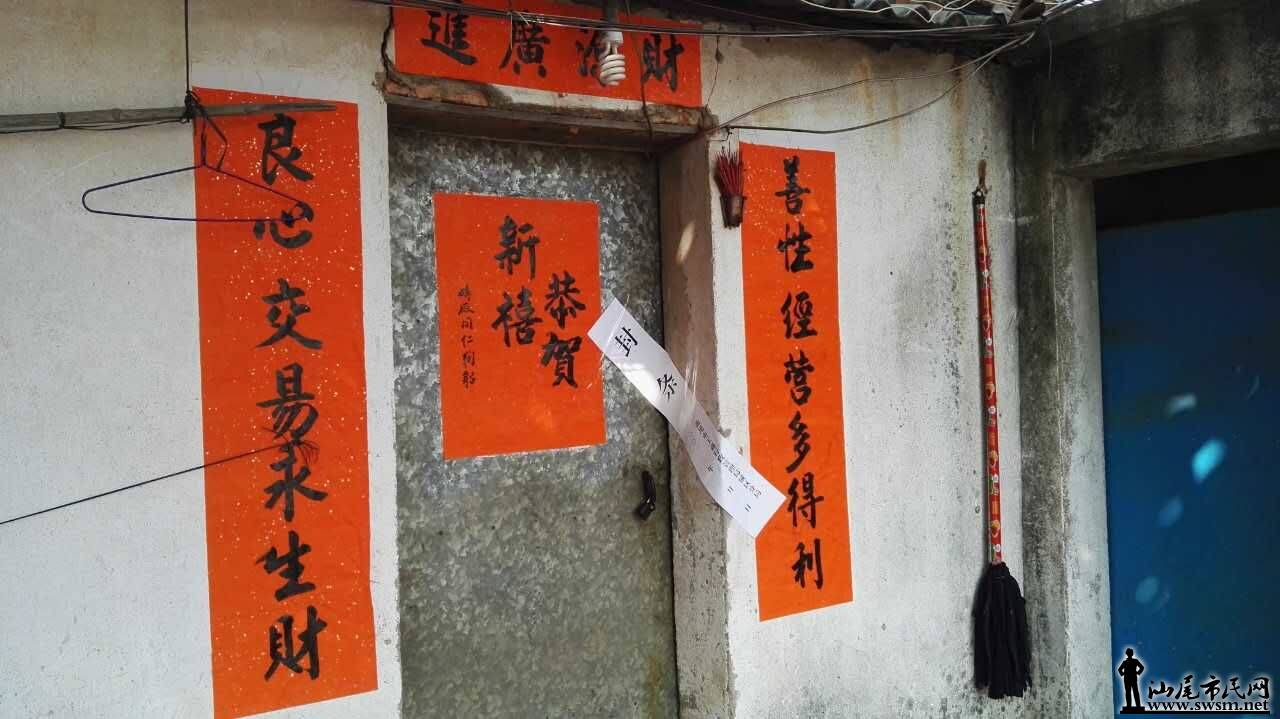 進廣源財
善性經营多得利
良心交易永生財
恭賀
新禧
封条
年 月 日
汕尾市民网
www.swsm.net